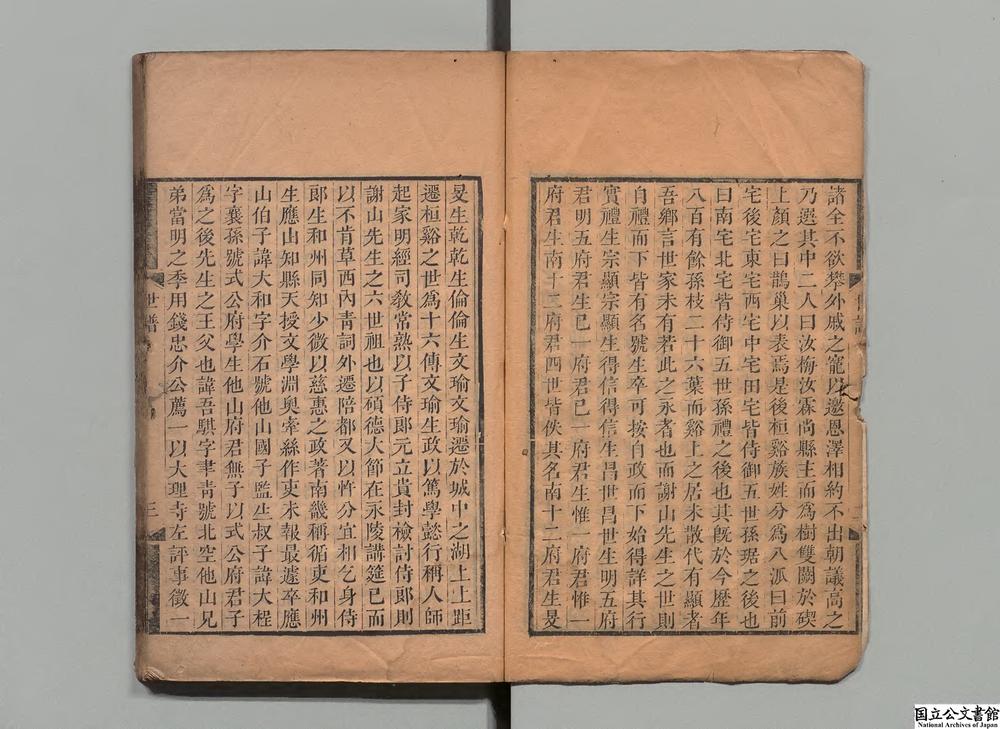 諸全不欲攀外戚之寵以邀恩澤相約不出朝議高之
乃選其中二人曰汝梅汝霖尚縣主而爲樹雙闕於碶
上顏之曰鵲巢以表焉是後桓谿族姓分爲八派曰前
宅後宅東宅西宅中宅田宅皆侍御五世孫琚之後也
曰南宅北宅皆侍御五世孫禮之後也其旣於今歷年
八百有餘孫枝二十六葉而谿上之居未散代有顯者
吾鄉言世家未有若此之永者也而謝山先生之世則
自禮而下皆有名號生卒可按自政而下始得詳其行
實禮生宗顯宗顯生得信得信生昌世昌世生明五府
君明五府君生已一府君已一府君生惟一府君惟一
府君生南十二府君四世皆佚其名南十二府君生旻
旻生乾乾生倫倫生文瑜文瑜遷於城中之湖上上距
遷桓谿之世爲十六傳文瑜生政以篤學懿行稱人師
起家明經司敎常熟以子侍郞元立貴封檢討侍郞則
謝山先生之六世祖也以碩德大節在永陵講筵已而
以不肯草西內靑詞外遷陪都又以忤分宜相乞身侍
郞生和州同知少微以慈惠之政著南畿稱循吏和州
生應山知縣天授文學淵奧牽絲作吏未報最遽卒應
山伯子諱大和字介石號他山國子監生叔子諱大程
字襄孫號式公府學生他山府君無子以式公府君子
爲之後先生之王父也諱吾騏字聿靑號北空他山兄
弟當明之季用錢忠介公薦一以大理寺左評事徵一
世譜
三
国立公文書館
National Archives of Japan